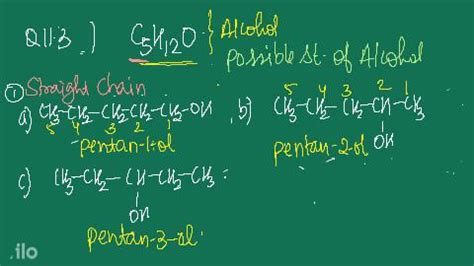 Q 11.3 ) C5H12O } Alcohol
Possible St. of Alcohol
① Straight Chain
a) CH3-CH2-CH2-CH2-CH2-OH
5 4 3 2 1
pentan-1-ol
b) 5 4 3 2 1
CH3-CH2-CH2-CH-CH3
OH
pentan-2-ol
c) CH3-CH2-CH-CH2-CH3 :
OH
pentan-3-ol
.ilo